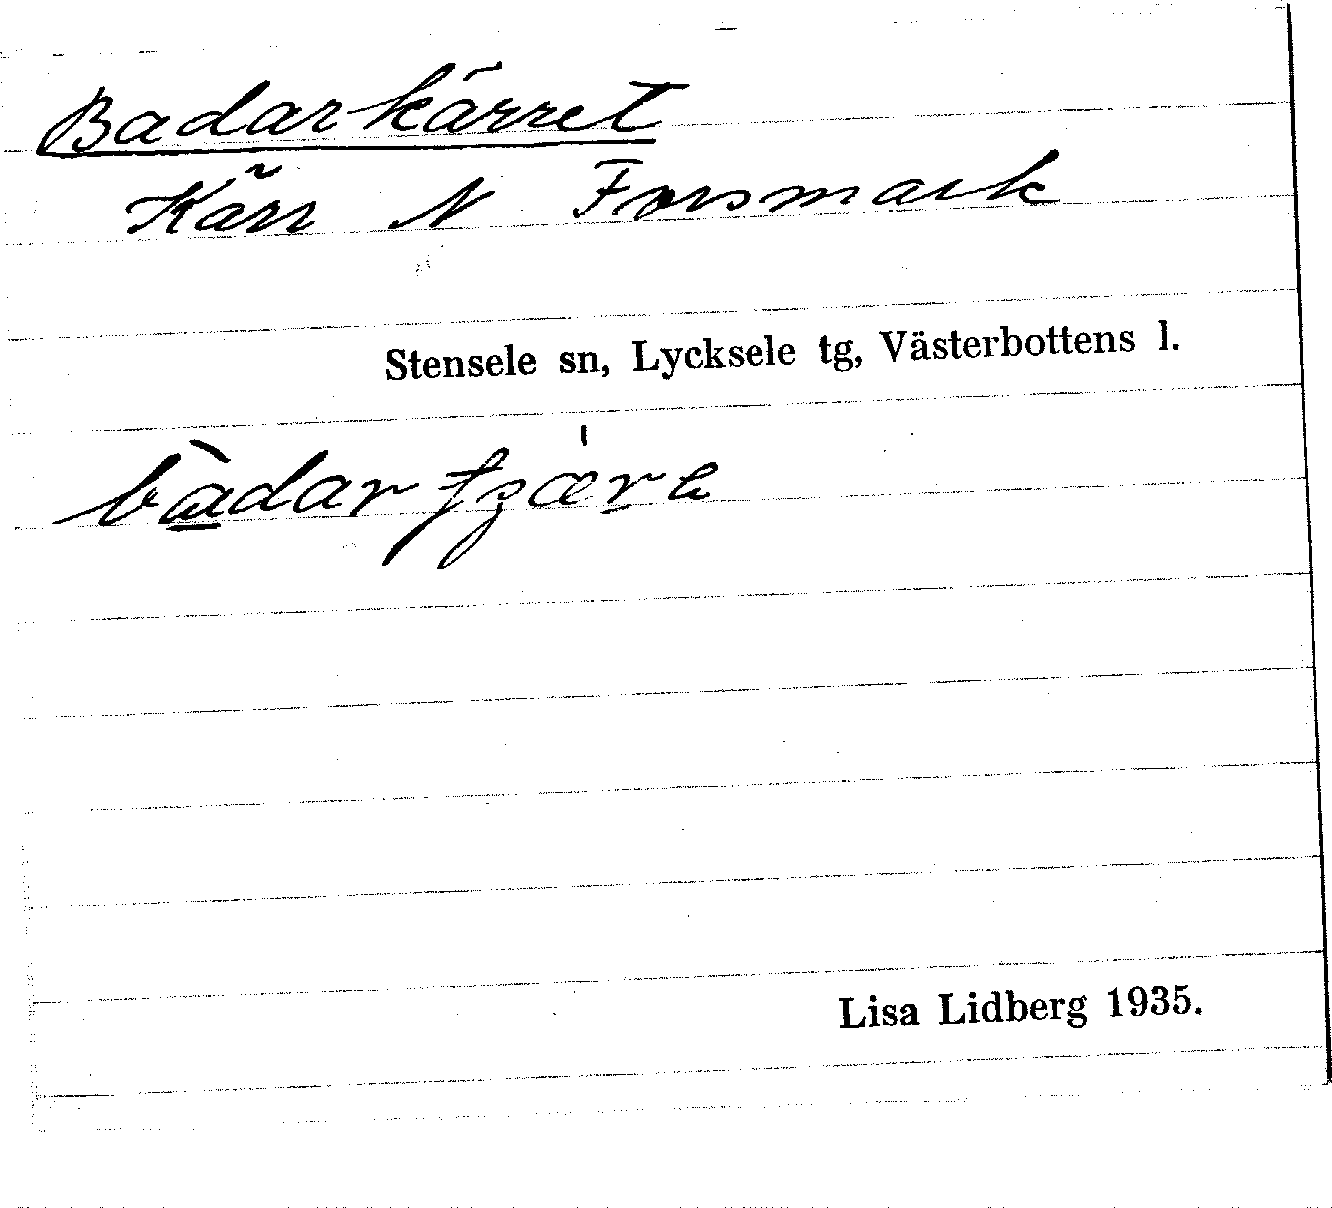 Badarkärret
Kärr N Forsmark
Stensele sn, Lycksele tg, Västerbottens l.
Lisa Lidberg 1935.